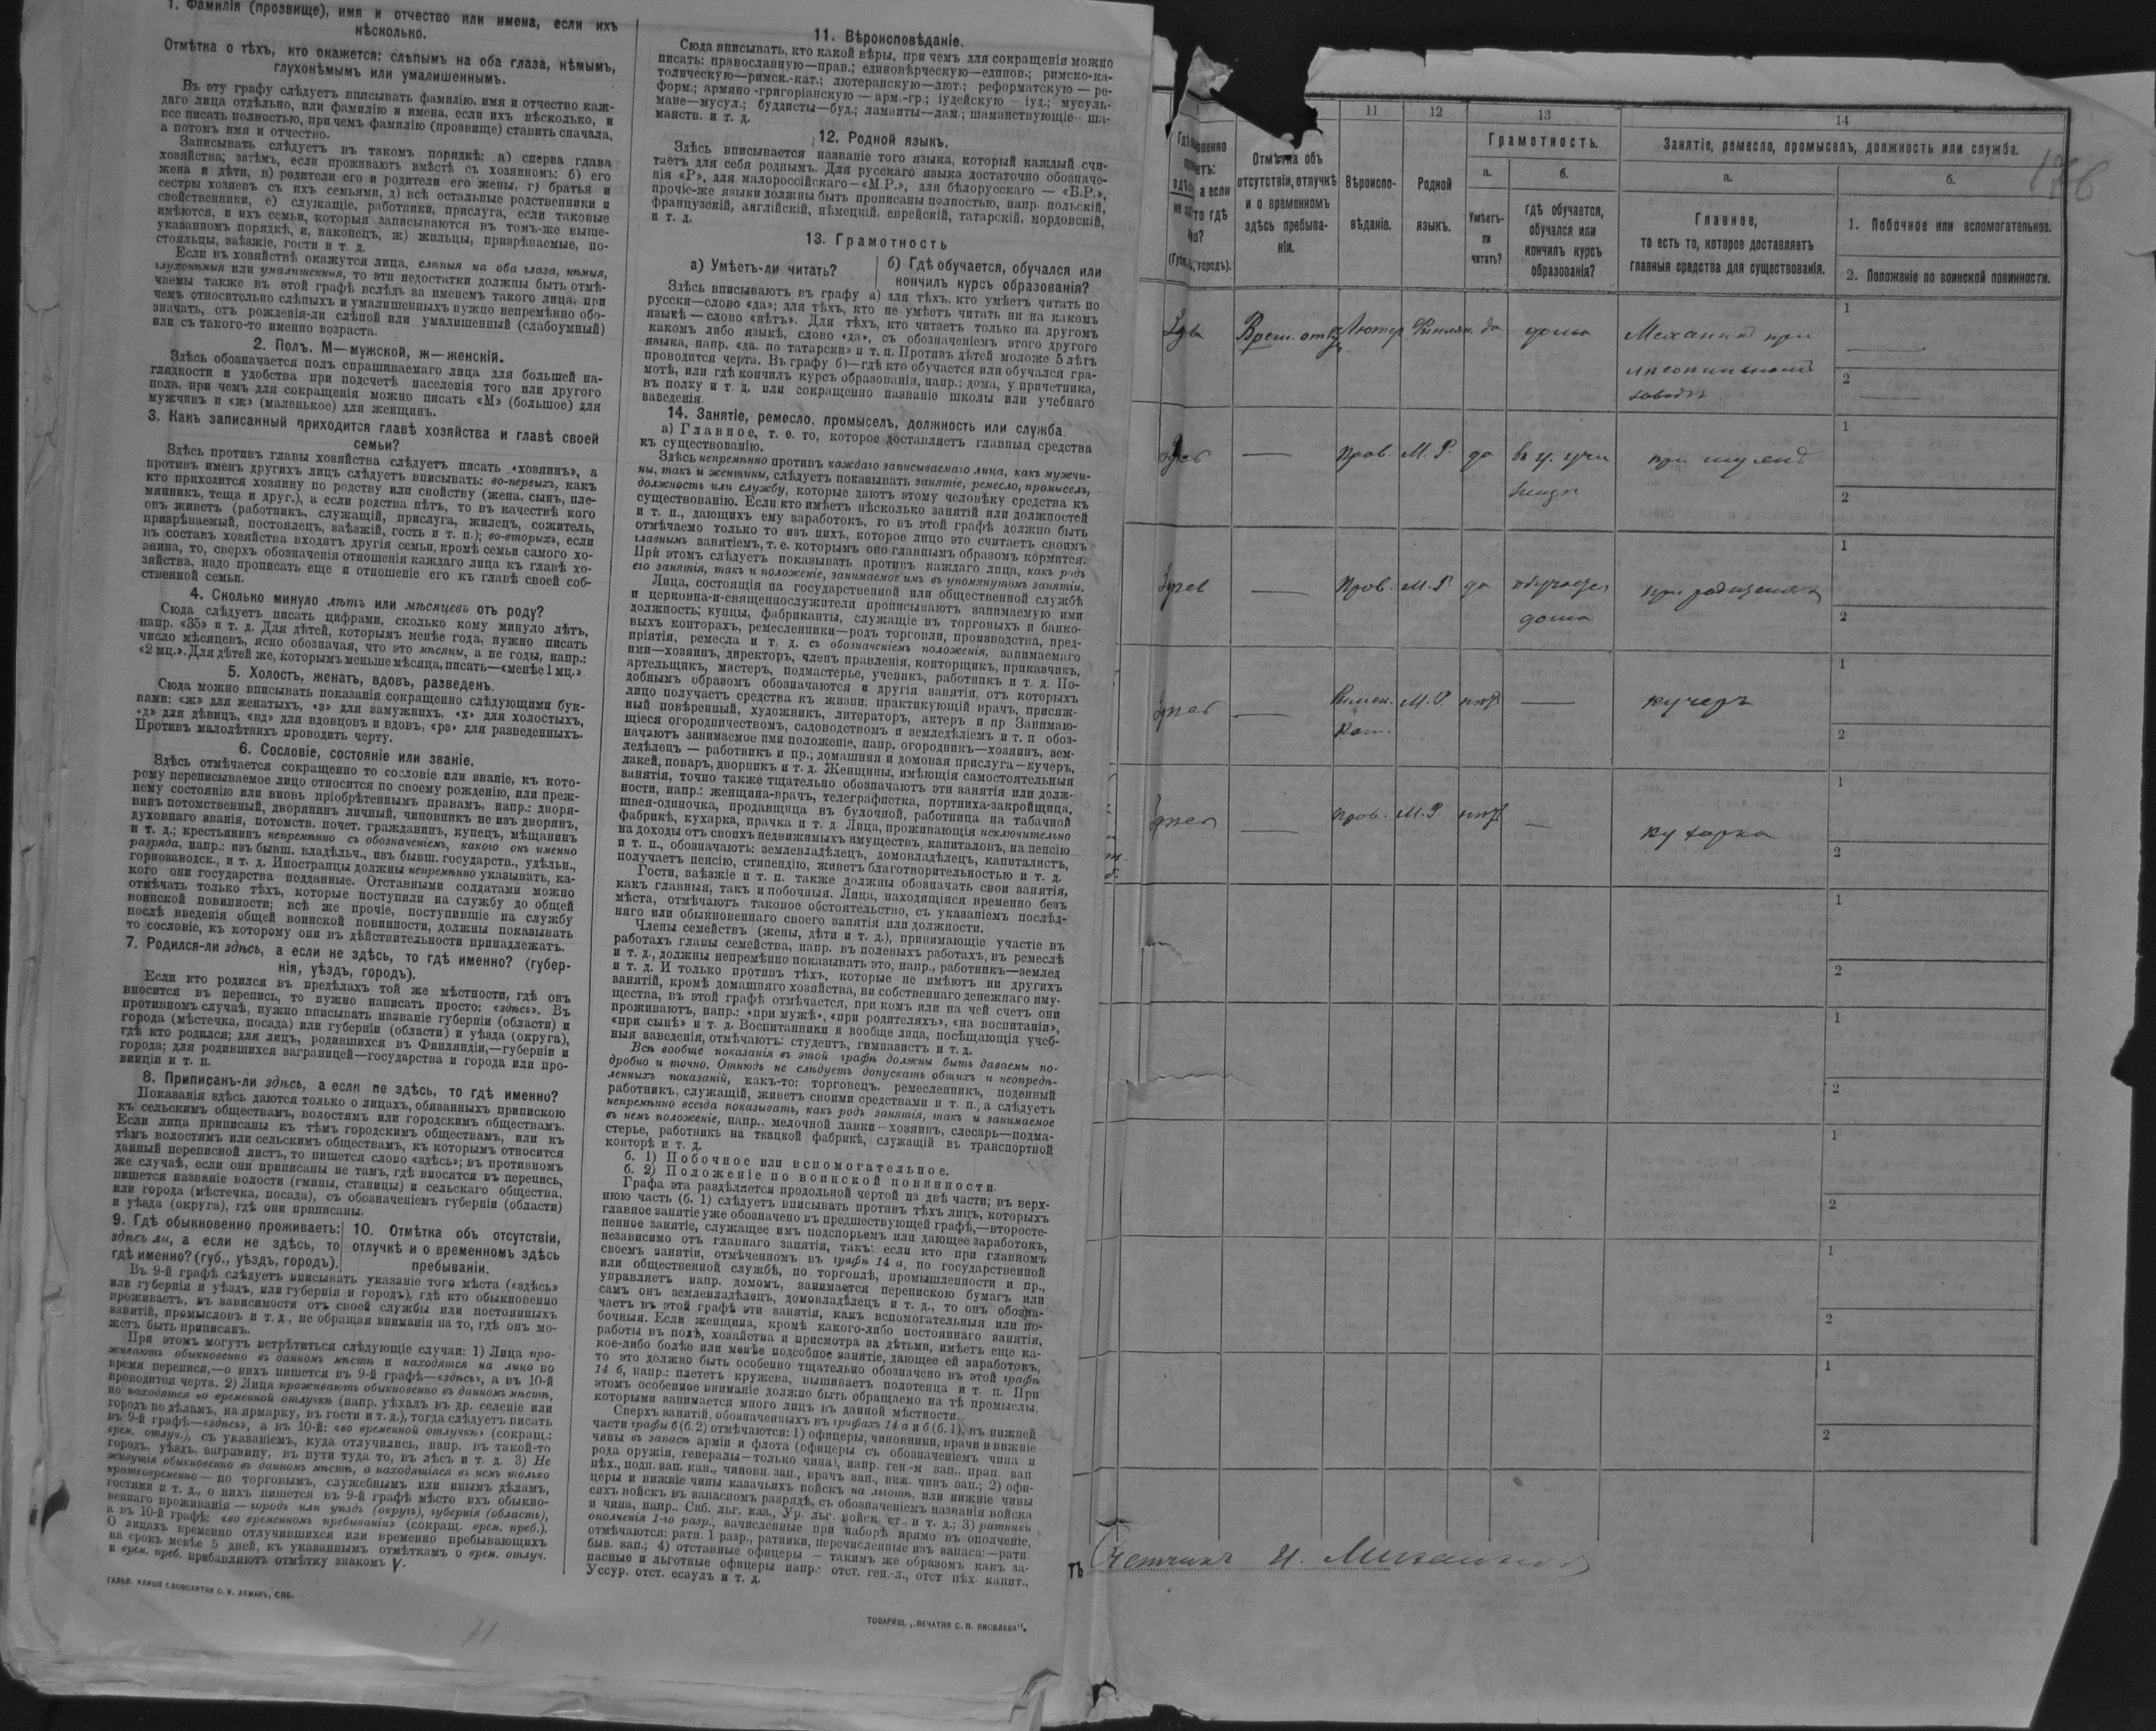 1. Фамилія (прозвище), имя и отчество или имена, если ихъ
нѣсколько.
Отмѣтка о тѣхъ, кто окажется: слѣпымъ на оба глаза, нѣмымъ,
глухонѣмымъ или умалишеннымъ.
Въ эту графу слѣдуетъ вписывать фамилію, имя и отчество каж-
даго лица отдѣльно, или фамилію и имена, если ихъ нѣсколько, и
все писать полностью, при чемъ фамилію (прозвище) ставить сначала,
а потомъ имя и отчество.
Записывать слѣдуетъ въ такомъ порядкѣ: а) сперва глава
хозяйства; затѣмъ, если проживаютъ вмѣстѣ съ хозяиномъ: б) его
жена и дѣти, в) родители его и родители его жены, г) братья и
сестры хозяевъ съ ихъ семьями, д) всѣ остальные родственники и
свойственники, е) служащіе, работники, прислуга, если таковые
имѣются, и ихъ семьи, которыя записываются въ томъ-же выше-
указанномъ порядкѣ, и, наконецъ, ж) жильцы, призрѣваемые, по-
стояльцы, заѣзжіе, гости и т. д.
Если въ хозяйствѣ окажутся лица, слѣпыя на оба глаза, нѣмыя,
глухонѣмыя или умалишенныя, то эти недостатки должны быть отмѣ-
чаемы также въ этой графѣ вслѣдъ за именемъ такого лица, при
чемъ относительно слѣпыхъ и умалишенныхъ нужно непремѣнно обо-
значать, отъ рожденія-ли слѣпой или умалишенный (слабоумный)
или съ такого-то именно возраста.
2. Полъ. М—мужской, ж—женскій.
Здѣсь обозначается полъ спрашиваемаго лица для большей на-
глядности и удобства при подсчетѣ населенія того или другого
пола, при чемъ для сокращенія можно писать «М» (большое) для
мужчинъ и «ж» (маленькое) для женщинъ.
3. Какъ записанный приходится главѣ хозяйства и главѣ своей
семьи?
Здѣсь противъ главы хозяйства слѣдуетъ писать «хозяинъ», а
противъ именъ другихъ лицъ слѣдуетъ вписывать: во-первыхъ, какъ
кто приходится хозяину по родству или свойству (жена, сынъ, пле-
мянникъ, теща и друг.), а если родства нѣтъ, то въ качествѣ кого
онъ живетъ (работникъ, служащій, прислуга, жилецъ, сожитель,
призрѣваемый, постоялецъ, заѣзжій, гость и т. п.); во-вторыхъ, если
въ составъ хозяйства входятъ другія семьи, кромѣ семьи самого хо-
зяина, то, сверхъ обозначенія отношенія каждаго лица къ главѣ хо-
зяйства, надо прописать еще и отношеніе его къ главѣ своей соб-
ственной семьи.
4. Сколько минуло лѣтъ или мѣсяцевъ отъ роду?
Сюда слѣдуетъ писать цифрами, сколько кому минуло лѣтъ,
напр. «35» и т. д. Для дѣтей, которымъ менѣе года, нужно писать
число мѣсяцевъ, ясно обозначая, что это мѣсяцы, а не годы, напр.:
«2 мц.». Для дѣтей же, которымъ меньше мѣсяца, писать—«менѣе 1 мц.».
5. Холостъ, женатъ, вдовъ, разведенъ.
Сюда можно вписывать показанія сокращенно слѣдующими бук-
вами: «ж» для женатыхъ, «з» для замужнихъ, «х» для холостыхъ,
«д» для дѣвицъ, «вд» для вдовцовъ и вдовъ, «рз» для разведенныхъ.
Противъ малолѣтнихъ проводить черту.
6. Сословіе, состояніе или званіе.
Здѣсь отмѣчается сокращенно то сословіе или званіе, къ кото-
рому переписываемое лицо относится по своему рожденію, или преж-
нему состоянію или вновь пріобрѣтеннымъ правамъ, напр.: дворя-
нинъ потомственный, дворянинъ личный, чиновникъ не изъ дворянъ,
духовнаго званія, потомств. почет. гражданинъ, купецъ, мѣщанинъ
и т. д.; крестьянинъ непремѣнно съ обозначеніемъ, какого онъ именно
разряда, напр.: изъ бывш. владѣльч., изъ бывш. государств., удѣльн.,
горнозаводск., и т. д. Иностранцы должны непремѣнно указывать, ка-
кого они государства подданные. Отставными солдатами можно
отмѣчать только тѣхъ, которые поступили на службу до общей
воинской повинности; всѣ же прочіе, поступившіе на службу
послѣ введенія общей воинской повинности, должны показывать
то сословіе, къ которому они въ дѣйствительности принадлежатъ.
7. Родился-ли здѣсь, а если не здѣсь, то гдѣ именно? (губер-
нія, уѣздъ, городъ).
Если кто родился въ предѣлахъ той же мѣстности, гдѣ онъ
вносится въ перепись, то нужно написать просто: «здѣсь». Въ
противномъ случаѣ, нужно вписывать названіе губерніи (области) и
города (мѣстечка, посада) или губерніи (области) и уѣзда (округа),
гдѣ кто родился; для лицъ, родившихся въ Финляндіи,—губерніи и
города; для родившихся заграницей—государства и города или про-
винціи и т. п.
8. Приписанъ-ли здѣсь, а если не здѣсь, то гдѣ именно?
Показанія здѣсь даются только о лицахъ, обязанныхъ припискою
къ сельскимъ обществамъ, волостямъ или городскимъ обществамъ.
Если лица приписаны къ тѣмъ городскимъ обществамъ, или къ
тѣмъ волостямъ или сельскимъ обществамъ, къ которымъ относится
данный переписной листъ, то пишется слово «здѣсь»; въ противномъ
же случаѣ, если они приписаны не тамъ, гдѣ вносятся въ перепись,
пишется названіе волости (гмины, станицы) и сельскаго общества,
или города (мѣстечка, посада), съ обозначеніемъ губерніи (области)
и уѣзда (округа), гдѣ они приписаны.
9. Гдѣ обыкновенно проживаетъ:
здѣсь ли, а если не здѣсь, то
гдѣ именно? (губ., уѣздъ, городъ).
10. Отмѣтка объ отсутствіи,
отлучкѣ и о временномъ здѣсь
пребываніи.
Въ 9-й графѣ слѣдуетъ вписывать указаніе того мѣста («здѣсь»
или губернія и уѣздъ, или губернія и городъ), гдѣ кто обыкновенно
проживаетъ, въ зависимости отъ своей службы или постоянныхъ
занятій, промысловъ и т. д., не обращая вниманія на то, гдѣ онъ мо-
жетъ быть приписанъ.
При этомъ могутъ встрѣтиться слѣдующіе случаи: 1) Лица про-
живаютъ обыкновенно въ данномъ мѣстѣ и находятся на лицо во
время переписи,—о нихъ пишется въ 9-й графѣ—«здѣсь», а въ 10-й
проводится черта. 2) Лица проживаютъ обыкновенно въ данномъ мѣстѣ,
но находятся во временной отлучкѣ (напр. уѣхалъ въ др. селеніе или
городъ по дѣламъ, на ярмарку, въ гости и т. д.), тогда слѣдуетъ писать
въ 9-й графѣ—«здѣсь», а въ 10-й: «во временной отлучкѣ» (сокращ.:
врем. отлуч.), съ указаніемъ, куда отлучились, напр. въ такой-то
городъ, уѣздъ, заграницу, въ пути туда то, въ лѣсъ и т. д. 3) Не
живущія обыкновенно въ данномъ мѣстѣ, а находящіяся въ немъ только
кратковременно — по торговымъ, служебнымъ или инымъ дѣламъ,
гостями и т. д., о нихъ пишется въ 9-й графѣ мѣсто ихъ обыкно-
веннаго проживанія — городъ или уѣздъ (округъ), губернія (область),
а въ 10-й графѣ: «во временномъ пребываніи» (сокращ. врем. преб.).
О лицахъ временно отлучившихся или временно пребывающихъ
на срокъ менѣе 5 дней, къ указаннымъ отмѣткамъ о врем. отлуч.
и врем. преб. прибавляютъ отмѣтку знакомъ V.
ГАЛЬВ. КЛИШЕ СЛОВОЛИТНИ О. И. ЛЕМАНЪ, СПБ.
11. Вѣроисповѣданіе.
Сюда вписывать, кто какой вѣры, при чемъ для сокращенія можно
писать: православную—прав.; единовѣрческую—единов.; римско-ка-
толическую—римск.-кат.; лютеранскую—лют.; реформатскую — ре-
форм.; армяно-григоріанскую — арм.-гр.; іудейскую — іуд.; мусуль-
мане—мусул.; буддисты—буд.; ламаиты—лам.; шаманствующіе—ша-
манств. и т. д.
12. Родной языкъ.
Здѣсь вписывается названіе того языка, который каждый счи-
таетъ для себя роднымъ. Для русскаго языка достаточно обозначе-
нія «Р», для малороссійскаго—«М.Р.», для бѣлорусскаго — «Б.Р.»,
прочіе-же языки должны быть прописаны полностью, напр. польскій,
французскій, англійскій, нѣмецкій, еврейскій, татарскій, мордовскій,
и т. д.
13. Грамотность
а) Умѣетъ-ли читать?
б) Гдѣ обучается, обучался или
кончилъ курсъ образованія?
Здѣсь вписываютъ въ графу а) для тѣхъ, кто умѣетъ читать по
русски—слово «да»; для тѣхъ, кто не умѣетъ читать ни на какомъ
языкѣ—слово «нѣтъ». Для тѣхъ, кто читаетъ только на другомъ
какомъ либо языкѣ, слово «да», съ обозначеніемъ этого другого
языка, напр. «да, по татарски» и т. п. Противъ дѣтей моложе 5 лѣтъ
проводится черта. Въ графу б)—гдѣ кто обучается или обучался гра-
мотѣ, или гдѣ кончилъ курсъ образованія, напр.: дома, у причетника,
въ полку и т. д. или сокращенно названіе школы или учебнаго
заведенія.
14. Занятіе, ремесло, промыселъ, должность или служба.
а) Главное, т. е. то, которое доставляетъ главныя средства
къ существованію.
Здѣсь непремѣнно противъ каждаго записываемаго лица, какъ мужчи-
ны, такъ и женщины, слѣдуетъ показывать занятіе, ремесло, промыселъ,
должность или службу, которые даютъ этому человѣку средства къ
существованію. Если кто имѣетъ нѣсколько занятій или должностей
и т. п., дающихъ ему заработокъ, то въ этой графѣ должно быть
отмѣчаемо только то изъ нихъ, которое лицо это считаетъ своимъ
главнымъ занятіемъ, т. е. которымъ оно главнымъ образомъ кормится.
При этомъ слѣдуетъ показывать противъ каждаго лица, какъ родъ
его занятія, такъ и положеніе, занимаемое имъ въ упомянутомъ занятіи.
Лица, состоящія на государственной или общественной службѣ
и церковно-и-священнослужители прописываютъ занимаемую ими
должность; купцы, фабриканты, служащіе въ торговыхъ и банко-
выхъ конторахъ, ремесленники—родъ торговли, производства, пред-
пріятія, ремесла и т. д. съ обозначеніемъ положенія, занимаемаго
ими—хозяинъ, директоръ, членъ правленія, конторщикъ, приказчикъ,
артельщикъ, мастеръ, подмастерье, ученикъ, работникъ и т. д. По-
добнымъ образомъ обозначаются и другія занятія, отъ которыхъ
лицо получаетъ средства къ жизни: практикующій врачъ, присяж-
ный повѣренный, художникъ, литераторъ, актеръ и пр. Занимаю-
щіеся огородничествомъ, садоводствомъ и земледѣліемъ и т. п. обоз-
начаютъ занимаемое ими положеніе, напр. огородникъ—хозяинъ, зем-
ледѣлецъ — работникъ и пр.; домашняя и домовая прислуга—кучеръ,
лакей, поваръ, дворникъ и т. д. Женщины, имѣющія самостоятельныя
занятія, точно также тщательно обозначаютъ эти занятія или долж-
ности, напр.: женщина-врачъ, телеграфистка, портниха-закройщица,
швея-одиночка, продавщица въ булочной, работница на табачной
фабрикѣ, кухарка, прачка и т. д. Лица, проживающія исключительно
на доходы отъ своихъ недвижимыхъ имуществъ, капиталовъ, на пенсію
и т. п., обозначаютъ: землевладѣлецъ, домовладѣлецъ, капиталистъ,
получаетъ пенсію, стипендію, живетъ благотворительностью и т. д.
Гости, заѣзжіе и т. п. также должны обозначать свои занятія,
какъ главныя, такъ и побочныя. Лица, находящіяся временно безъ
мѣста, отмѣчаютъ таковое обстоятельство, съ указаніемъ послѣд-
няго или обыкновеннаго своего занятія или должности.
Члены семействъ (жены, дѣти и т. д.), принимающіе участіе въ
работахъ главы семейства, напр. въ полевыхъ работахъ, въ ремеслѣ
и т. д., должны непремѣнно показывать это, напр., работникъ—землед
и т. д. И только противъ тѣхъ, которые не имѣютъ ни другихъ
занятій, кромѣ домашняго хозяйства, ни собственнаго денежнаго иму-
щества, въ этой графѣ отмѣчается, при комъ или на чей счетъ они
проживаютъ, напр.: «при мужѣ», «при родителяхъ», «на воспитаніи»,
«при сынѣ» и т. д. Воспитанники и вообще лица, посѣщающія учеб-
ныя заведенія, отмѣчаютъ: студентъ, гимназистъ и т. д.
Всѣ вообще показанія въ этой графѣ должны быть даваемы по-
дробно и точно. Отнюдь не слѣдуетъ допускать общихъ и неопредѣ-
ленныхъ показаній, какъ-то: торговецъ, ремесленникъ, поденный
работникъ, служащій, живетъ своими средствами и т. п., а слѣдуетъ
непремѣнно всегда показывать, какъ родъ занятія, такъ и занимаемое
въ немъ положеніе, напр.. мелочной лавки—хозяинъ, слесарь—подма-
стерье, работникъ на ткацкой фабрикѣ, служащій въ транспортной
конторѣ и т. д.
б. 1) Побочное или вспомогательное.
б. 2) Положеніе по воинской повинности.
Графа эта раздѣляется продольной чертой на двѣ части; въ верх-
нюю часть (б. 1) слѣдуетъ вписывать противъ тѣхъ лицъ, которыхъ
главное занятіе уже обозначено въ предшествующей графѣ,—второсте-
пенное занятіе, служащее имъ подспорьемъ или дающее заработокъ,
независимо отъ главнаго занятія, такъ: если кто при главномъ
своемъ занятіи, отмѣченномъ въ графѣ 14 а, по государственной
или общественной службѣ, по торговлѣ, промышленности и пр.,
управляетъ напр. домомъ, занимается перепискою бумагъ или
самъ онъ землевладѣлецъ, домовладѣлецъ и т. д., то онъ обозна-
чаетъ въ этой графѣ эти занятія, какъ вспомогательныя или по-
бочныя. Если женщина, кромѣ какого-либо постояннаго занятія,
работы въ полѣ, хозяйства и присмотра за дѣтьми, имѣетъ еще ка-
кое-либо болѣе или менѣе подсобное занятіе, дающее ей заработокъ,
то это должно быть особенно тщательно обозначено въ этой графѣ
14 б, напр.: плететъ кружева, вышиваетъ полотенца и т. п. При
этомъ особенное вниманіе должно быть обращаемо на тѣ промыслы,
которыми занимается много лицъ въ данной мѣстности.
Сверхъ занятій, обозначенныхъ въ графахъ 14 а и б (б. 1), въ нижней
части графы б (б. 2) отмѣчаются: 1) офицеры, чиновники, врачи и нижніе
чины въ запасѣ арміи и флота (офицеры съ обозначеніемъ чина и
рода оружія, генералы—только чина), напр. ген.-м зап., прап. зап
пѣх., подп. зап. кав., чиновн. зап., врачъ зап., ниж. чинъ зап.; 2) офи-
церы и нижніе чины казачьихъ войскъ на льготѣ, или нижніе чины
сихъ войскъ въ запасномъ разрядѣ, съ обозначеніемъ названія войска
и чина, напр.. Сиб. льг. каз., Ур. льг. войск. ст., и т. д.; 3) ратники
ополченія 1-го разр., зачисленные при наборѣ прямо въ ополченіе,
отмѣчаются: ратн. 1 разр., ратники, перечисленные изъ запаса:—ратн.
быв. зап.; 4) отставные офицеры — такимъ же образомъ какъ за-
пасные и льготные офицеры напр.: отст. ген.-л., отст пѣх. капит.,
Уссур. отст. есаулъ и т. д.
ТОВАРИЩ. „ПЕЧАТНЯ С. П. ЯКОВЛЕВА".
11 12 13 14
Отмѣтка объ
отсутствіи, отлучкѣ
и о временномъ
здѣсь пребыва-
ніи.
Вѣроиспо-
вѣданіе.
Родной
языкъ.
Грамотность.
а.
Умѣетъ-
ли
читать?
б.
гдѣ обучается,
обучался или
кончилъ курсъ
образованія?
Занятіе, ремесло, промыселъ, должность или служба.
а.
Главное,
то есть то, которое доставляетъ
главныя средства для существованія.
б.
1. Побочное или вспомогательное.
2. Положеніе по воинской повинности.
Врем. Лютер. да дома Механикъ при
заводѣ
1
2
прав. М. Р. да
1
2
прав. М. Р. да обучается при родителяхъ
дома
1
2
Римск. М. Р. нѣтъ — кучеръ
Кат.
1
2
прав. М. Р. нѣтъ — кухарка
1
2
1
2
1
2
1
2
1
2
1
2
Счетчикъ